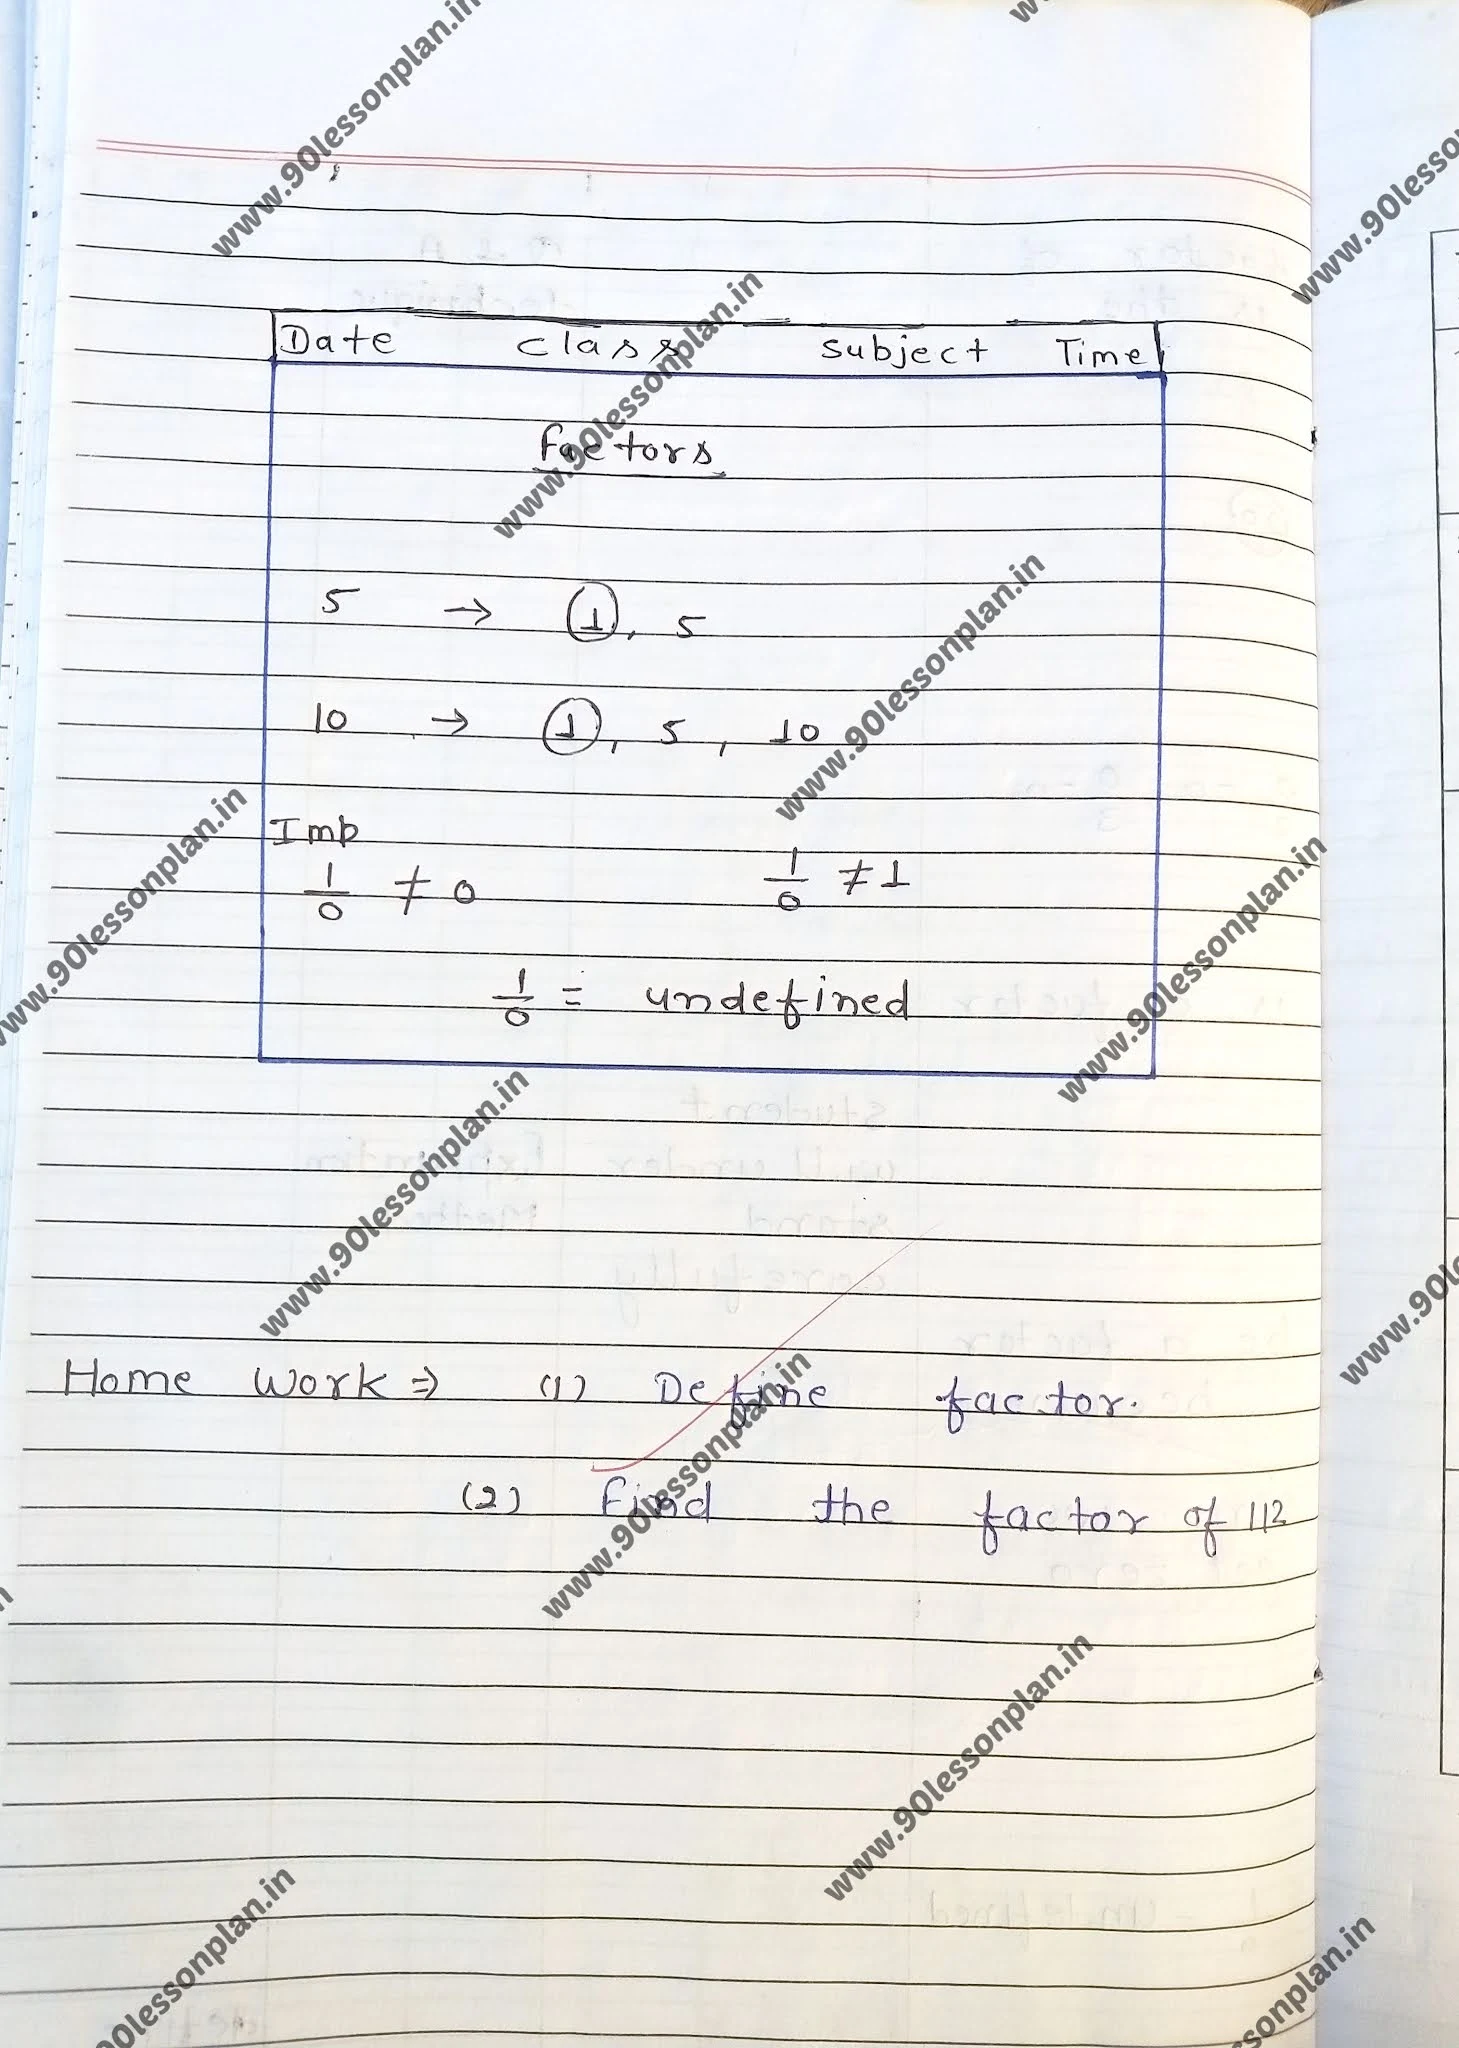 www.90lessonplan.in
Date class subject Time
factors
5 → 1, 5
10 → 1, 5, 10
Imp
1/0 ≠ 0 1/0 ≠ 1
1/0 = undefined
Home Work ⇒ (1) Define factor.
(2) Find the factor of 112